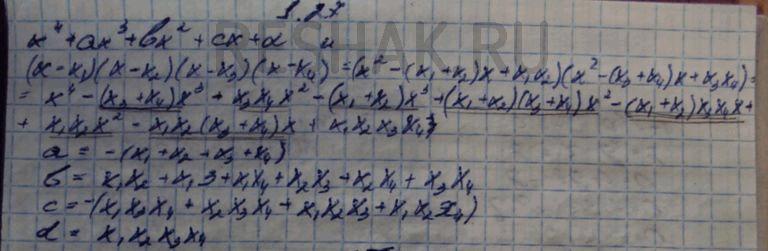 1.27
x⁴ + ax³ + bx² + cx + d и
(x-x₁)(x-x₂)(x-x₃)(x-x₄) = (x² - (x₁+x₂)x + x₁x₂)(x² - (x₃+x₄)x + x₃x₄) =
= x⁴ - (x₃+x₄)x³ + x₃x₄x² - (x₁+x₂)x³ + (x₁+x₂)(x₃+x₄)x² - (x₁+x₂)x₃x₄x +
+ x₁x₂x² - x₁x₂(x₃+x₄)x + x₁x₂x₃x₄;
a = -(x₁+x₂+x₃+x₄)
b = x₁x₂ + x₁3 + x₁x₄ + x₂x₃ + x₂x₄ + x₃x₄
c = -(x₁x₃x₄ + x₂x₃x₄ + x₁x₂x₃ + x₁x₂x₄)
d = x₁x₂x₃x₄
RESHAK.RU